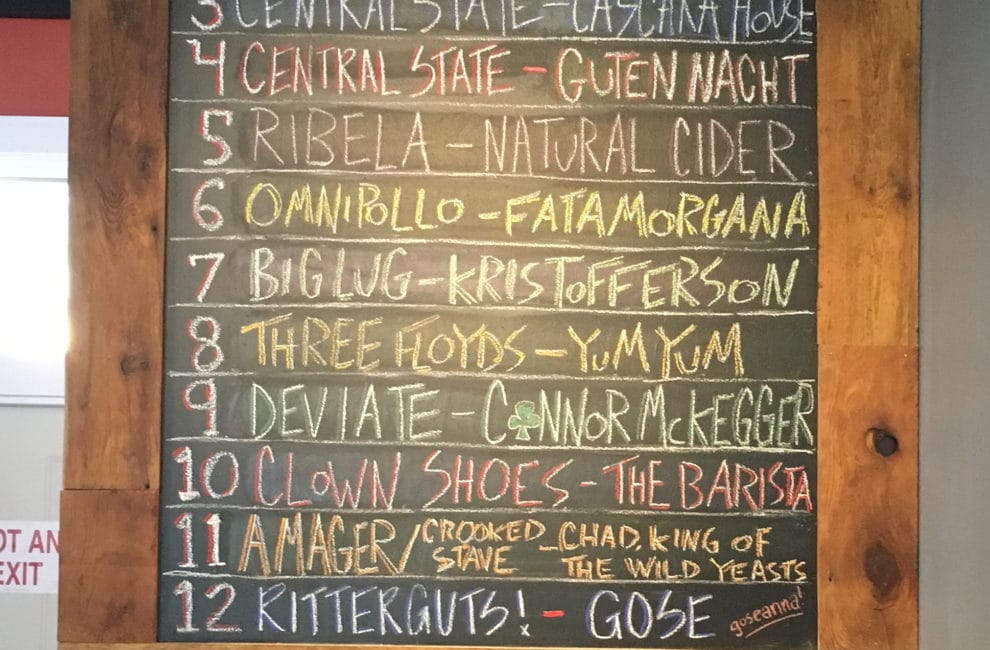 3 CENTRAL STATE - CASCARA HOUSE
4 CENTRAL STATE - GUTEN NACHT
5 RIBELA - NATURAL CIDER
6 OMNIPOLLO - FATAMORGANA
7 BIG LUG - KRISTOFFERSON
8 THREE FLOYDS - YUM YUM
9 DEVIATE - C☘NNOR McKEGGER
10 CLOWN SHOES - THE BARISTA
11 AMAGER/CROOKED STAVE - CHAD, KING OF
THE WILD YEASTS
12 RITTERGUTS! - GOSE goseanna!
OT AN
EXIT